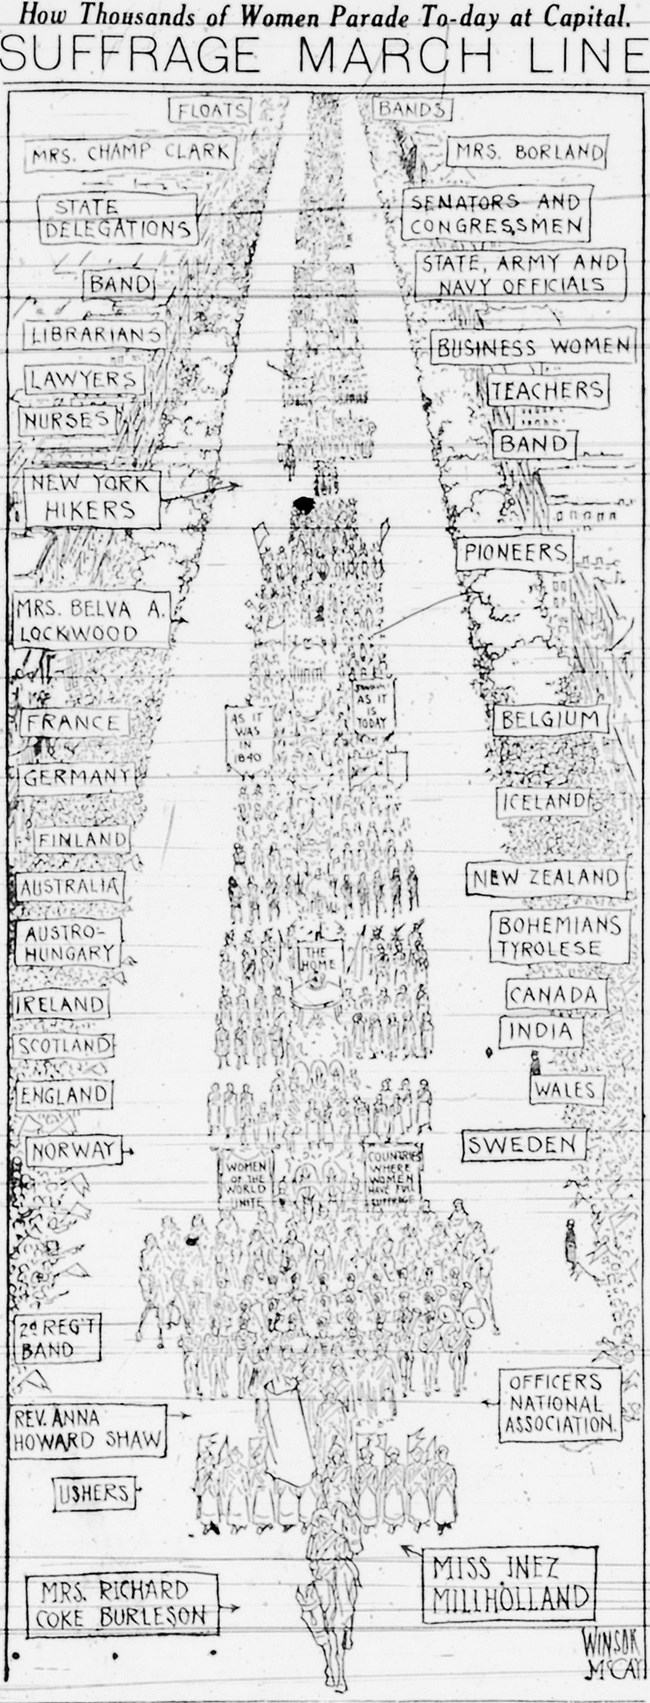 How Thousands of Women Parade To-day at Capital.
SUFFRAGE MARCH LINE
FLOATS
BANDS
MRS. CHAMP CLARK
MRS. BORLAND
STATE
DELEGATIONS
SENATORS AND
CONGRESSMEN
STATE, ARMY AND
NAVY OFFICIALS
BAND
LIBRARIANS
BUSINESS WOMEN
LAWYERS
TEACHERS
NURSES
BAND
NEW YORK
HIKERS
PIONEERS
MRS. BELVA A.
LOCKWOOD
AS IT
WAS
IN
1840
AS IT
IS
TODAY
FRANCE
BELGIUM
GERMANY
ICELAND
FINLAND
AUSTRALIA
NEW ZEALAND
AUSTRO-
HUNGARY
THE
HOME
BOHEMIANS
TYROLESE
IRELAND
CANADA
SCOTLAND
INDIA
ENGLAND
WALES
NORWAY
SWEDEN
WOMEN
OF THE
WORLD
UNITE
COUNTRIES
WHERE
WOMEN
HAVE FULL
SUFFRAGE
2d REG'T
BAND
OFFICERS
NATIONAL
ASSOCIATION.
REV. ANNA
HOWARD SHAW
USHERS
MISS INEZ
MILLHOLLAND
MRS. RICHARD
COKE BURLESON
WINSOR
McCAY